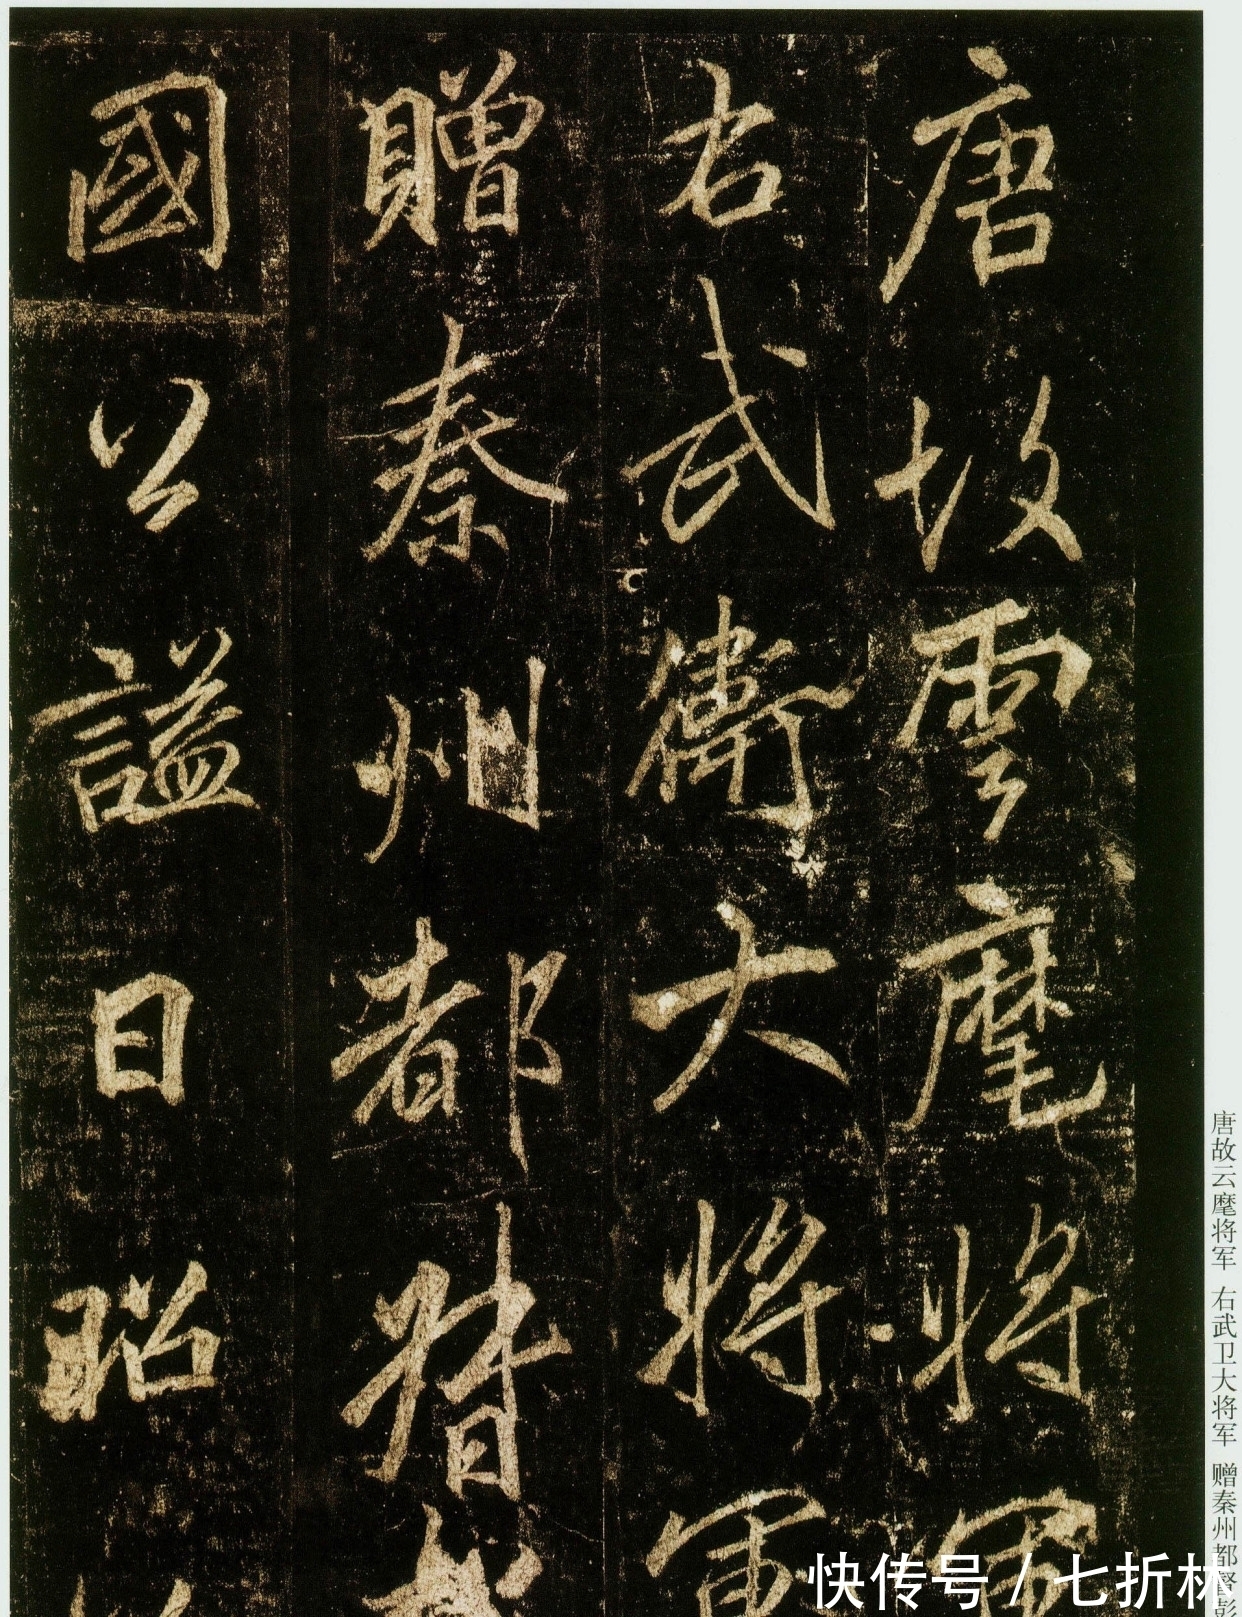 唐故雲麾将軍
右武衛大将軍
贈秦州都督彭
國公謚曰昭公
唐故云麾将军 右武卫大将军 赠秦州都督彭
快传号 / 七折林